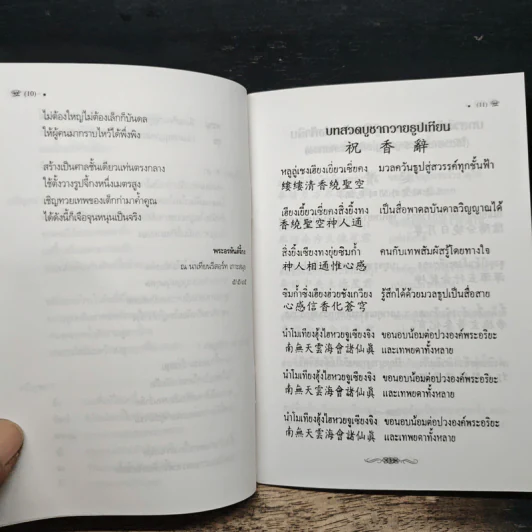 (10)
ไม่ต้องใหญ่ไม่ต้องเล็กก็บันดล
ให้ผู้คนมากราบไหว้ได้พึ่งพิง
สร้างเป็นศาลชั้นเดียวแท่นตรงกลาง
ใช้ตั้งวางรูปจี้กงหนึ่งเมตรสูง
เชิญทวยเทพของเด็กก่ามาค้ำคูณ
ได้ดังนี้ก็เจือจุนหนุนเป็นจริง
พระอรหันต์จี้กง
(11)
บทสวดบูชาถวายธูปเทียน
祝 香 辭
หลูลู่เชงเฮียงเยี่ยวเซี่ยคง มวลควันธูปสู่สวรรค์ทุกชั้นฟ้า
縷縷清香繞聖空
เฮียงเยี้ยวเซี่ยคงสิ่งยิ้งทง เป็นสื่อพาดลบันดาลวิญญาณได้
香繞聖空神人通
สิ่งยิ้งเซียงทงยุ่ยซิมก้ำ คนกับเทพสัมผัสรู้โดยทางใจ
神人相通惟心感
ซิมก้ำซิ่งเฮียงฮ่วยชังเกวียง รู้สึกได้ด้วยมวลธูปเป็นสื่อสาย
心感信香化蒼穹
นำโมเทียงฮุ้งไฮหวยจูเซียงจิง ขอนอบน้อมต่อปวงองค์พระอริยะ
南無天雲海會諸仙眞 และเทพยดาทั้งหลาย
นำโมเทียงฮุ้งไฮหวยจูเซียงจิง ขอนอบน้อมต่อปวงองค์พระอริยะ
南無天雲海會諸仙眞 และเทพยดาทั้งหลาย
นำโมเทียงฮุ้งไฮหวยจูเซียงจิง ขอนอบน้อมต่อปวงองค์พระอริยะ
南無天雲海會諸仙眞 และเทพยดาทั้งหลาย